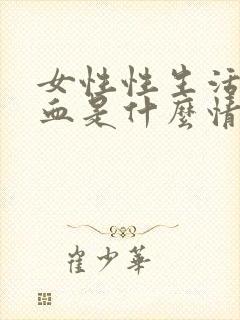 女性性生活
血是什麼情
崔少華